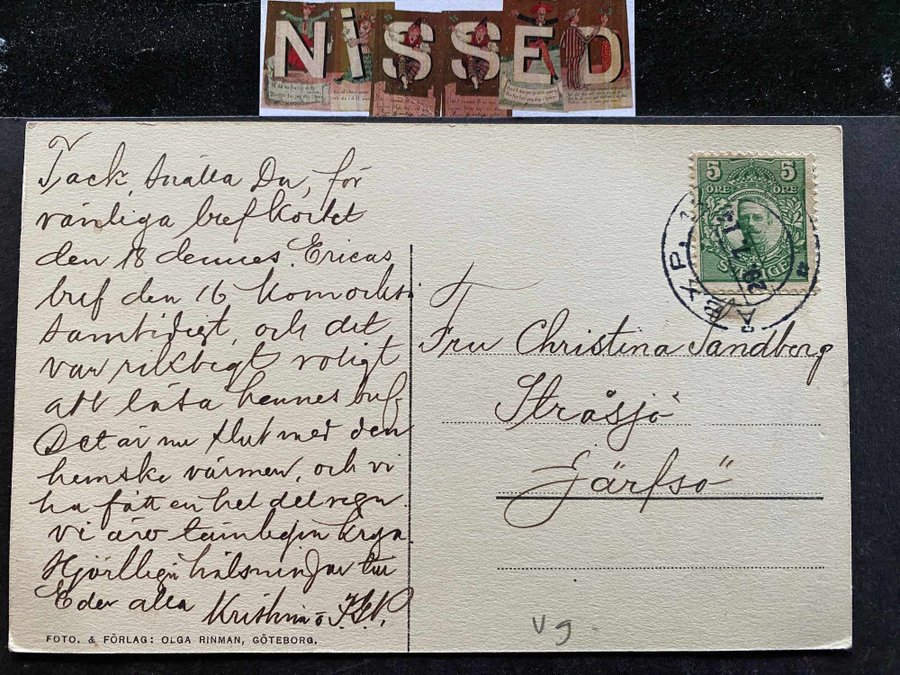 NISSED
Tack, snälla Du, för
vänliga brefkortet
den 18 dennes. Ericas
bref den 16 kom också
samtidigt, och det
var riktigt roligt
att läsa hennes bref.
Det är nu slut med den
hemska värmen, och vi
ha fått en hel del regn.
Vi äro krya.
Hjärtliga hälsningar till
Eder alla
Kristina o
FOTO. & FÖRLAG: OLGA RINMAN, GÖTEBORG.
5 5
ÖRE ÖRE
Fru Christina Sandberg
Stråsjö
Järfsö
Vg.